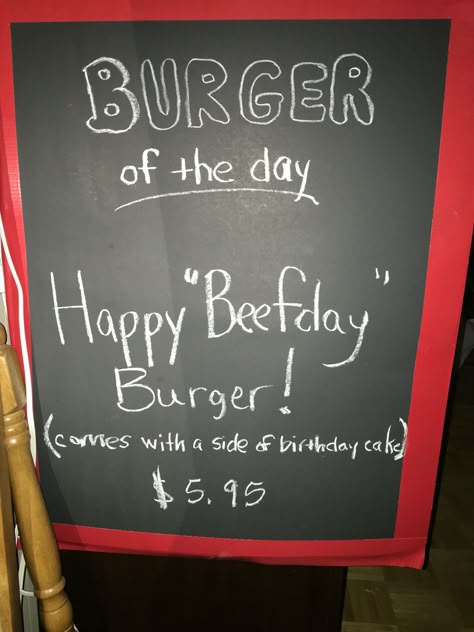 BURGER
of the day
Happy "Beefday"
Burger!
(comes with a side of birthday cake)
$5.95